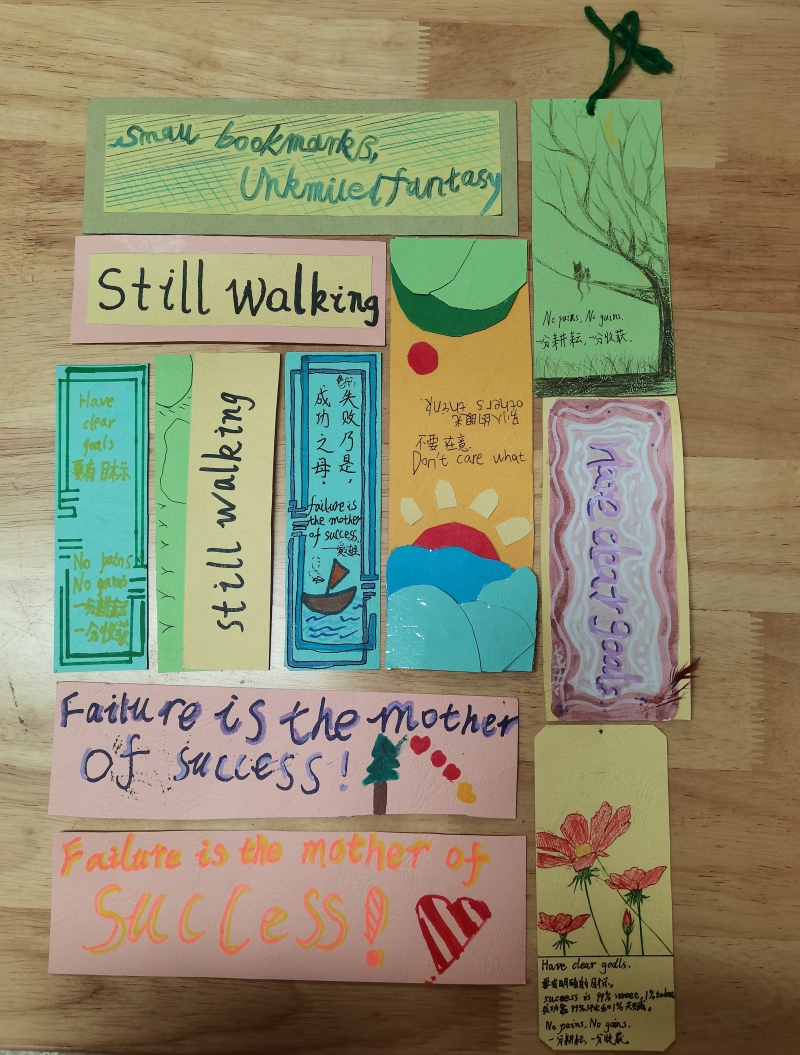 small bookmarks,
Unkmited fantasy
Still walking
No pains, No gains.
一分耕耘,一分收获.
Have
clear
goals
要有目标
No pains
No gains
一分耕耘
一分收获
still walking
失败乃是,
成功之母.
failure is
the mother
of success.
不要在意
别人的眼光
Don't care what
others think
Have clear goals
Failure is the mother
of success!
Failure is the mother of
Success!
Have clear goals.
要有明确的目标。
success is 99% sweet, 1%
成功靠99%汗水和1%天赋
No pains, No gains.
一分耕耘,一分收获.